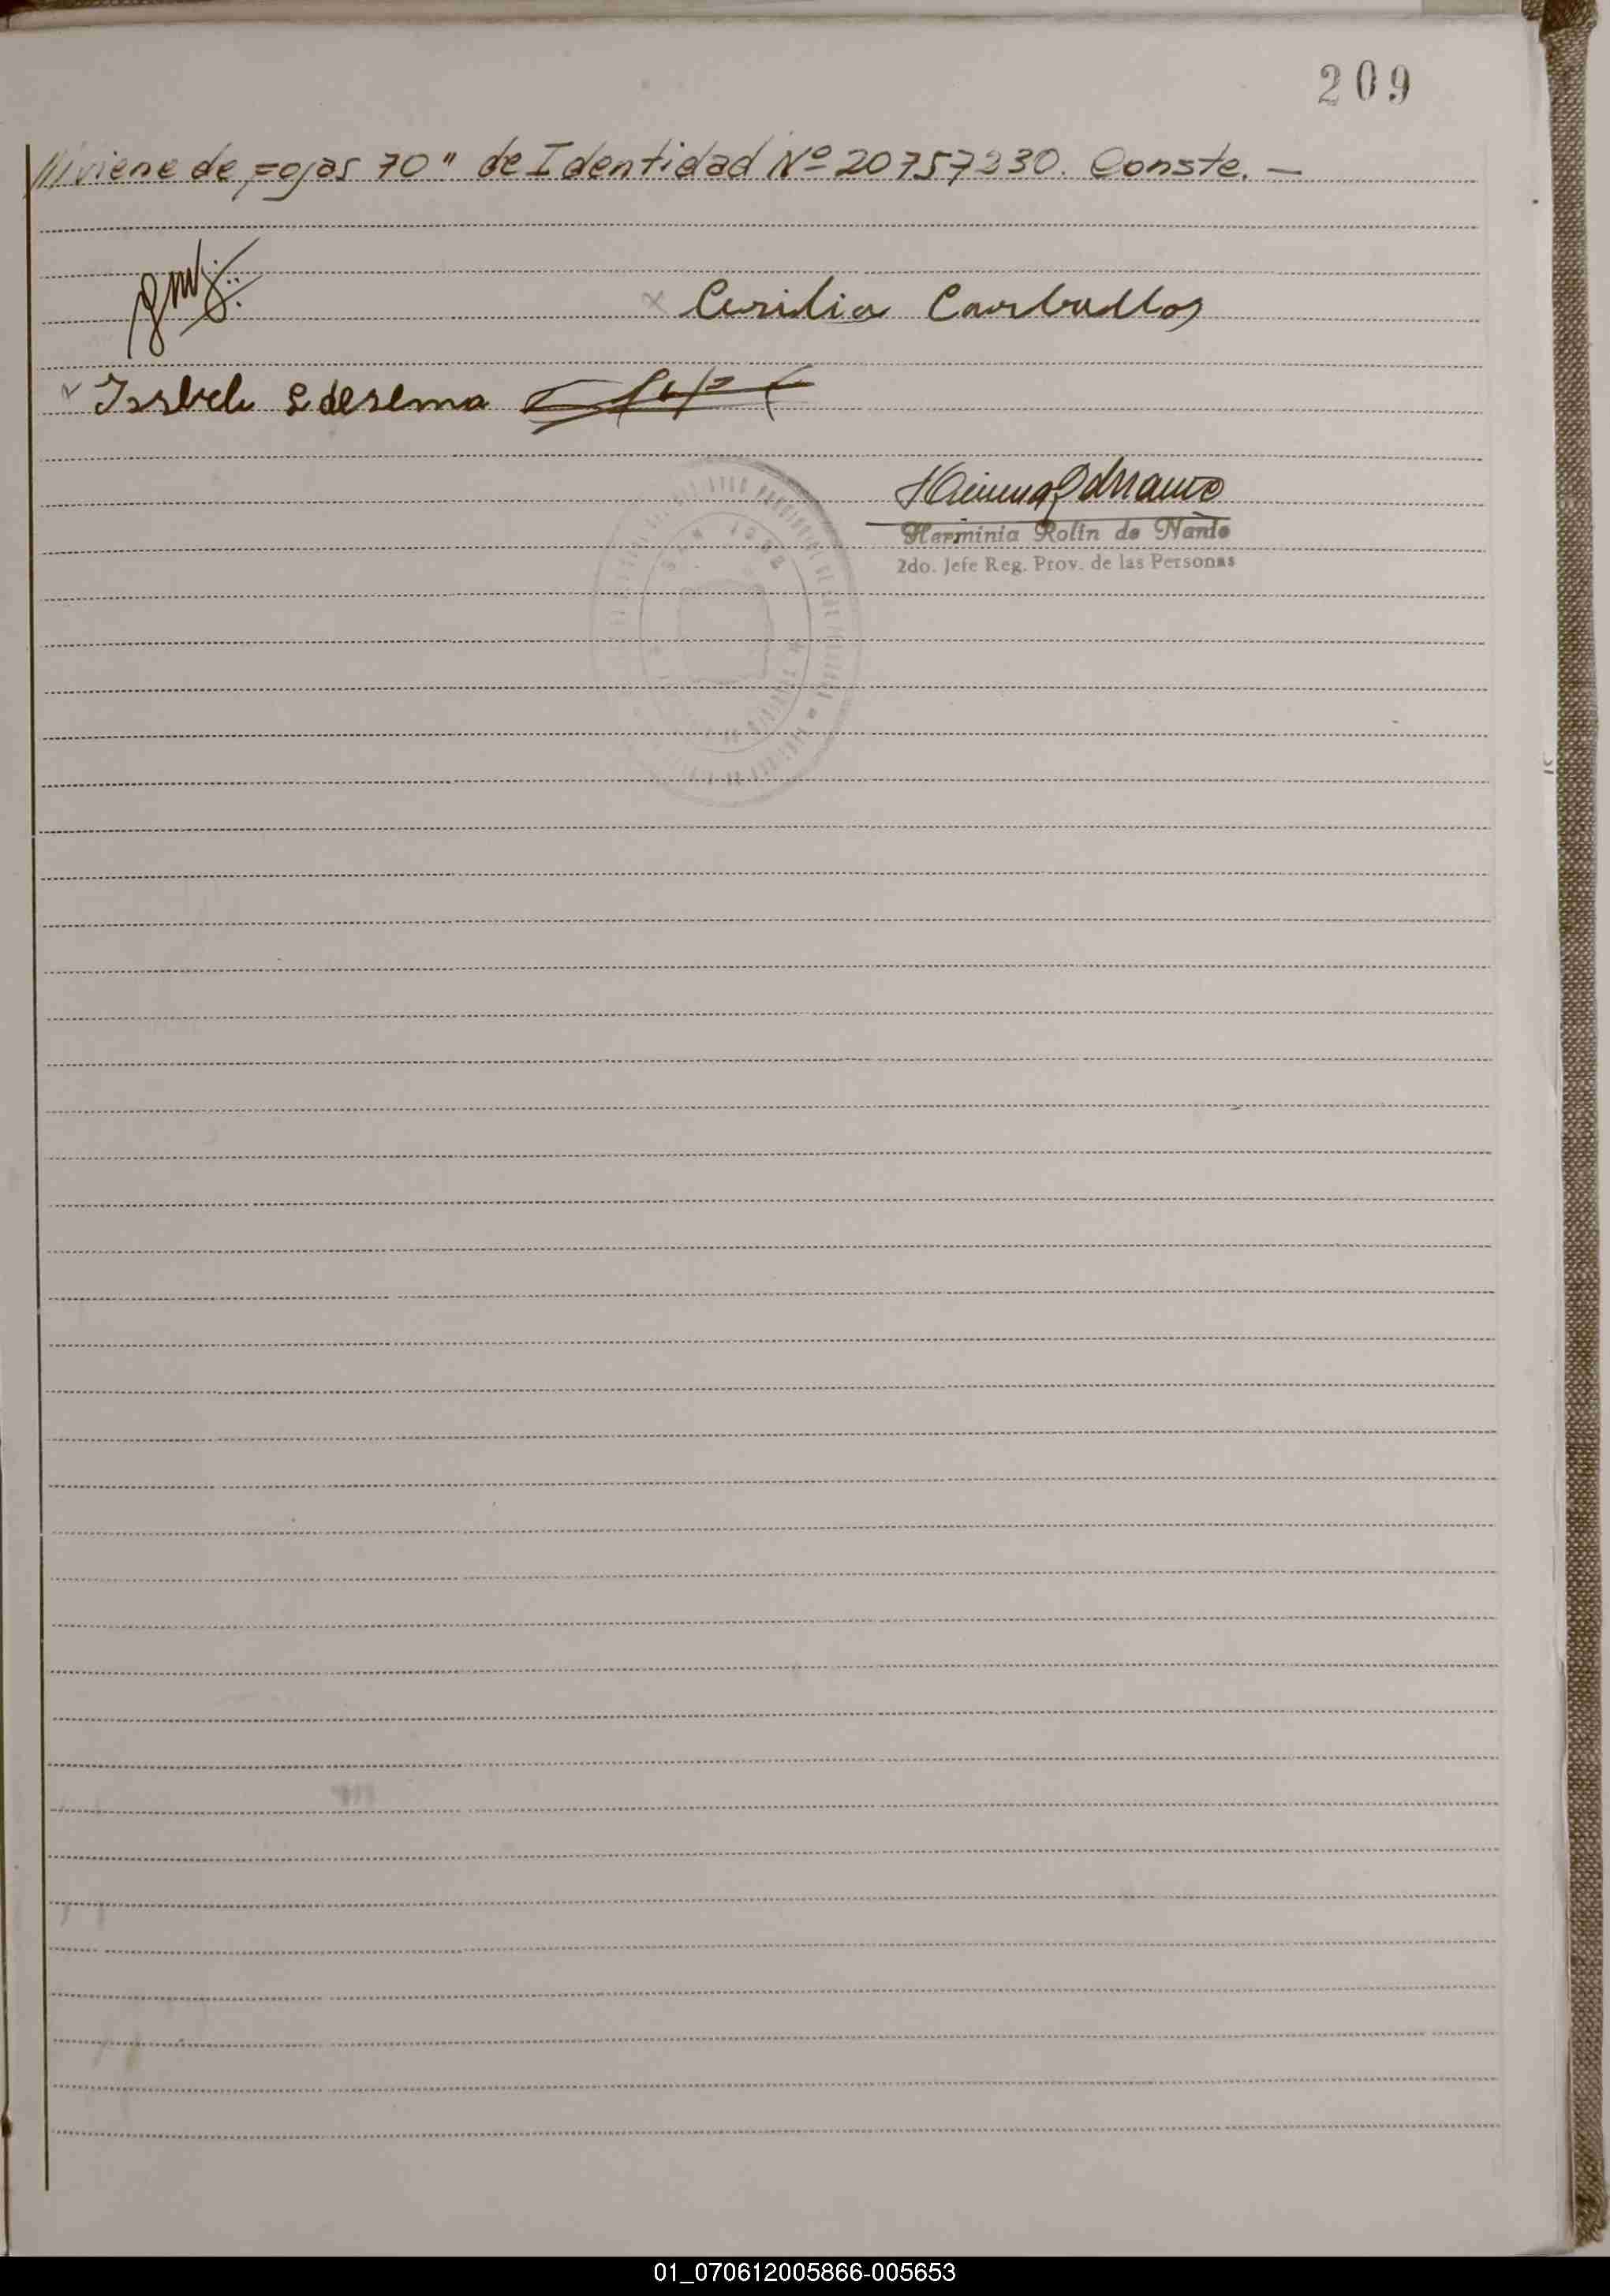 209
///viene de fojas 70" de Identidad Nº 20757230. Conste. —
x Cirilia Carballos
Isabel Ledesema
Herminia Rolin de Nanto
2do. Jefe Reg. Prov. de las Personas
SAN JOSE
01_070612005866-005653